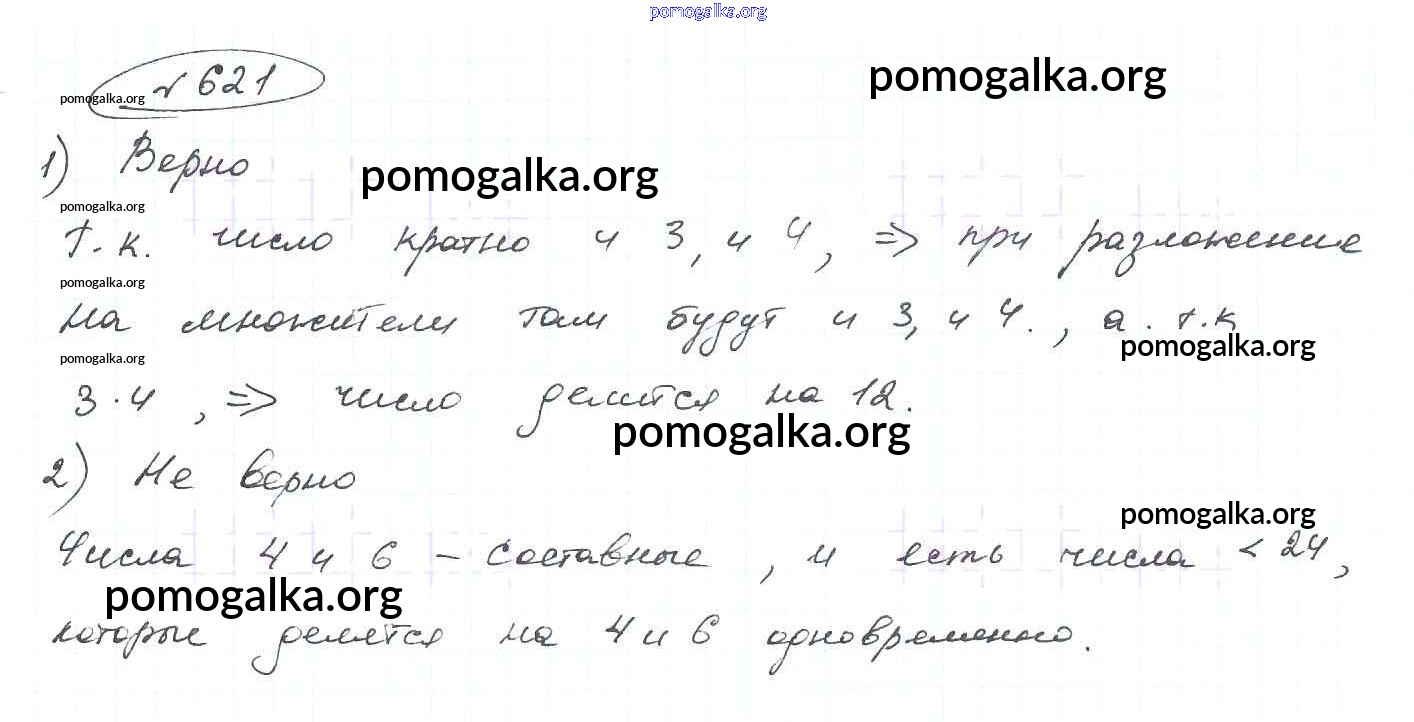 pomogalka.org
№ 621
pomogalka.org
pomogalka.org
1) Верно
pomogalka.org
pomogalka.org
т.к. число кратно и 3, и 4, => при разложение
pomogalka.org
на множители там будут и 3, и 4., а. т.к
pomogalka.org
pomogalka.org
3·4, => число делится на 12.
pomogalka.org
2) Не верно
pomogalka.org
Числа 4 и 6 – составные, и есть числа < 24,
pomogalka.org
которые делятся на 4 и 6 одновременно.